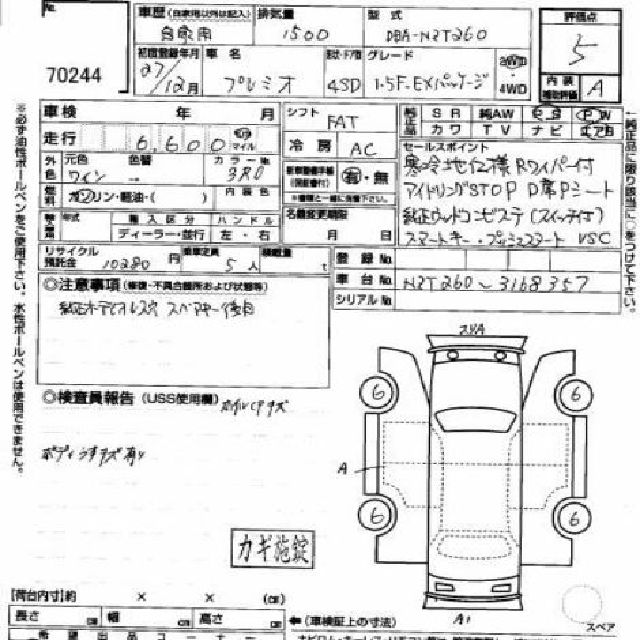 No. 70244
車歴 (自家用以外は記入) 自家用
排気量 1500
型式 DBA-NZT260
評価点 5
内装 補助評価 A
初度登録年月 27/12月
車名 プレミオ
ドア形状 4SD
グレード 1.5F.EXパッケージ
2WD・4WD
車検 年 月
シフト FAT
純正品 SR 純AW PS PW
カワ TV ナビ エアB
走行 6,600 マイル
冷房 AC
セールスポイント
寒冷地仕様 Rワイパー付
アイドリングSTOP D席Pシート
純正ウッドコンビステ(スイッチ付)
スマートキー・プッシュスタート VSC
外色 元色 ワイン 色替 カラーNo. 3R0
有・無
燃料 ガソリン・軽油・( ) 内装色
名義変更期限 月 日
輸入区分 ディーラー・並行
ハンドル 左・右
リサイクル預託金 10280円
乗車定員 5人
積載量 t
登録No.
車台No. NZT260-3168357
シリアルNo.
◎注意事項(修復・不具合箇所および状態等)
純正オーディオレス穴 スペアキー後日
◎検査員報告(USS使用欄)
ボディうすキズ有り
カギ施錠
スリA
6
6
A
6
6
A1
スペア
(荷台内寸)約 × × (cm)
長さ cm 幅 cm 高さ cm
←(車検証上の寸法)
希望出品コーナー
※必ず油性ボールペンをご使用下さい。水性ボールペンは使用できません。